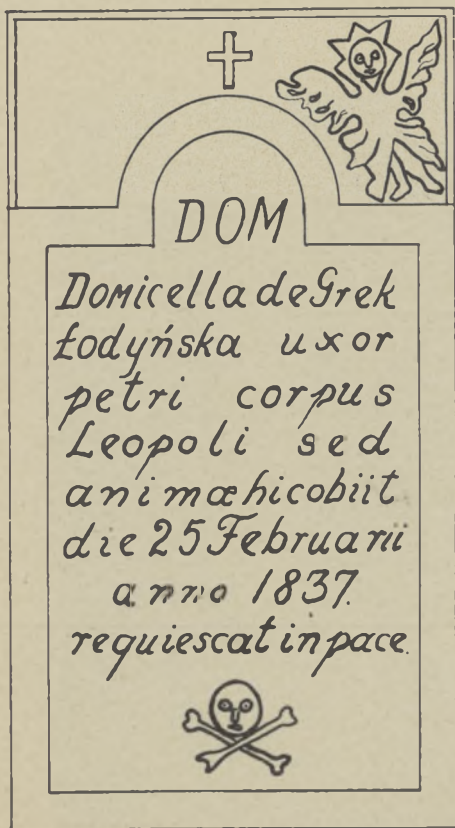 DOM
Domicella de Grek
Łodyńska uxor
petri corpus
Leopoli sed
animæ hic obiit
die 25 Februarii
anno 1837.
requiescat in pace.